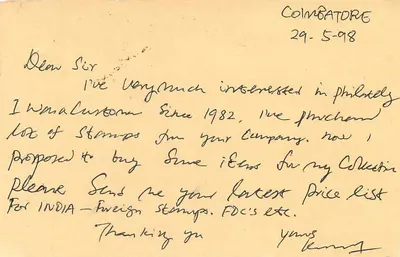 COIMBATORE
29-5-98
Dear Sir
I've very much interested in philately
I was a customer since 1982, I've purchased
lot of stamps from your company. Now I
proposed to buy some items for my collection
please send me your latest price list
For INDIA - Foreign stamps. FDC's etc.
Thanking you
yours